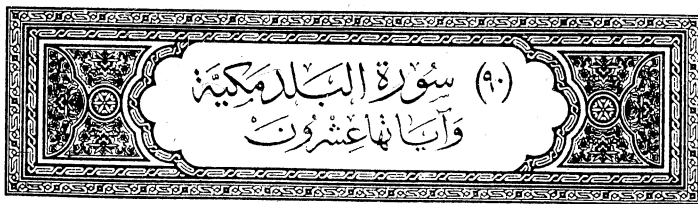 (٩٠) سُورَةِ البَلَدِ مَكِيَّة
وَآيَاتُهَا عِشْرُونَ